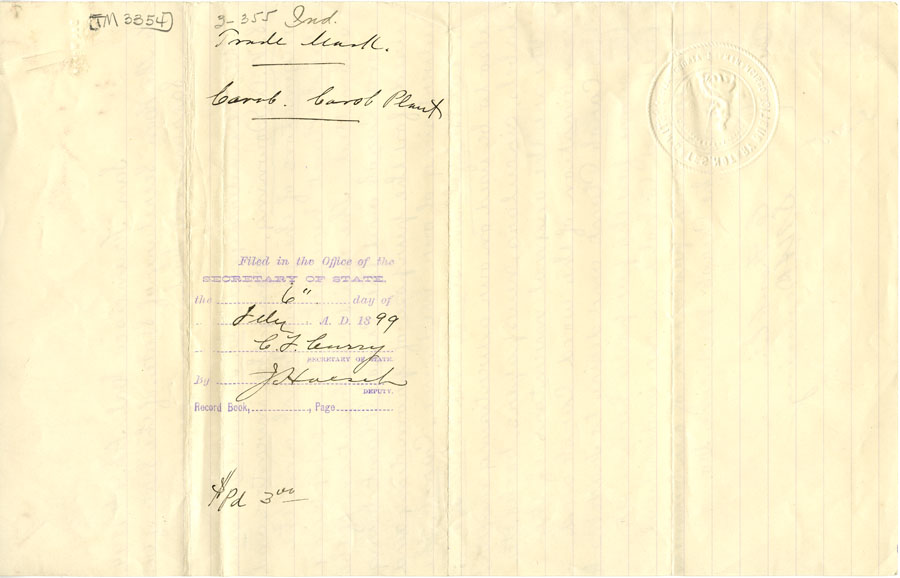 TM 3354
3-355 Ind.
Trade Mark.
Carob. Carob Plant
Filed in the Office of the
SECRETARY OF STATE,
the 6" day of
A. D. 1899
C. F. Curry
SECRETARY OF STATE.
By J. Hoesch
DEPUTY.
Record Book, , Page
Pd 3 00